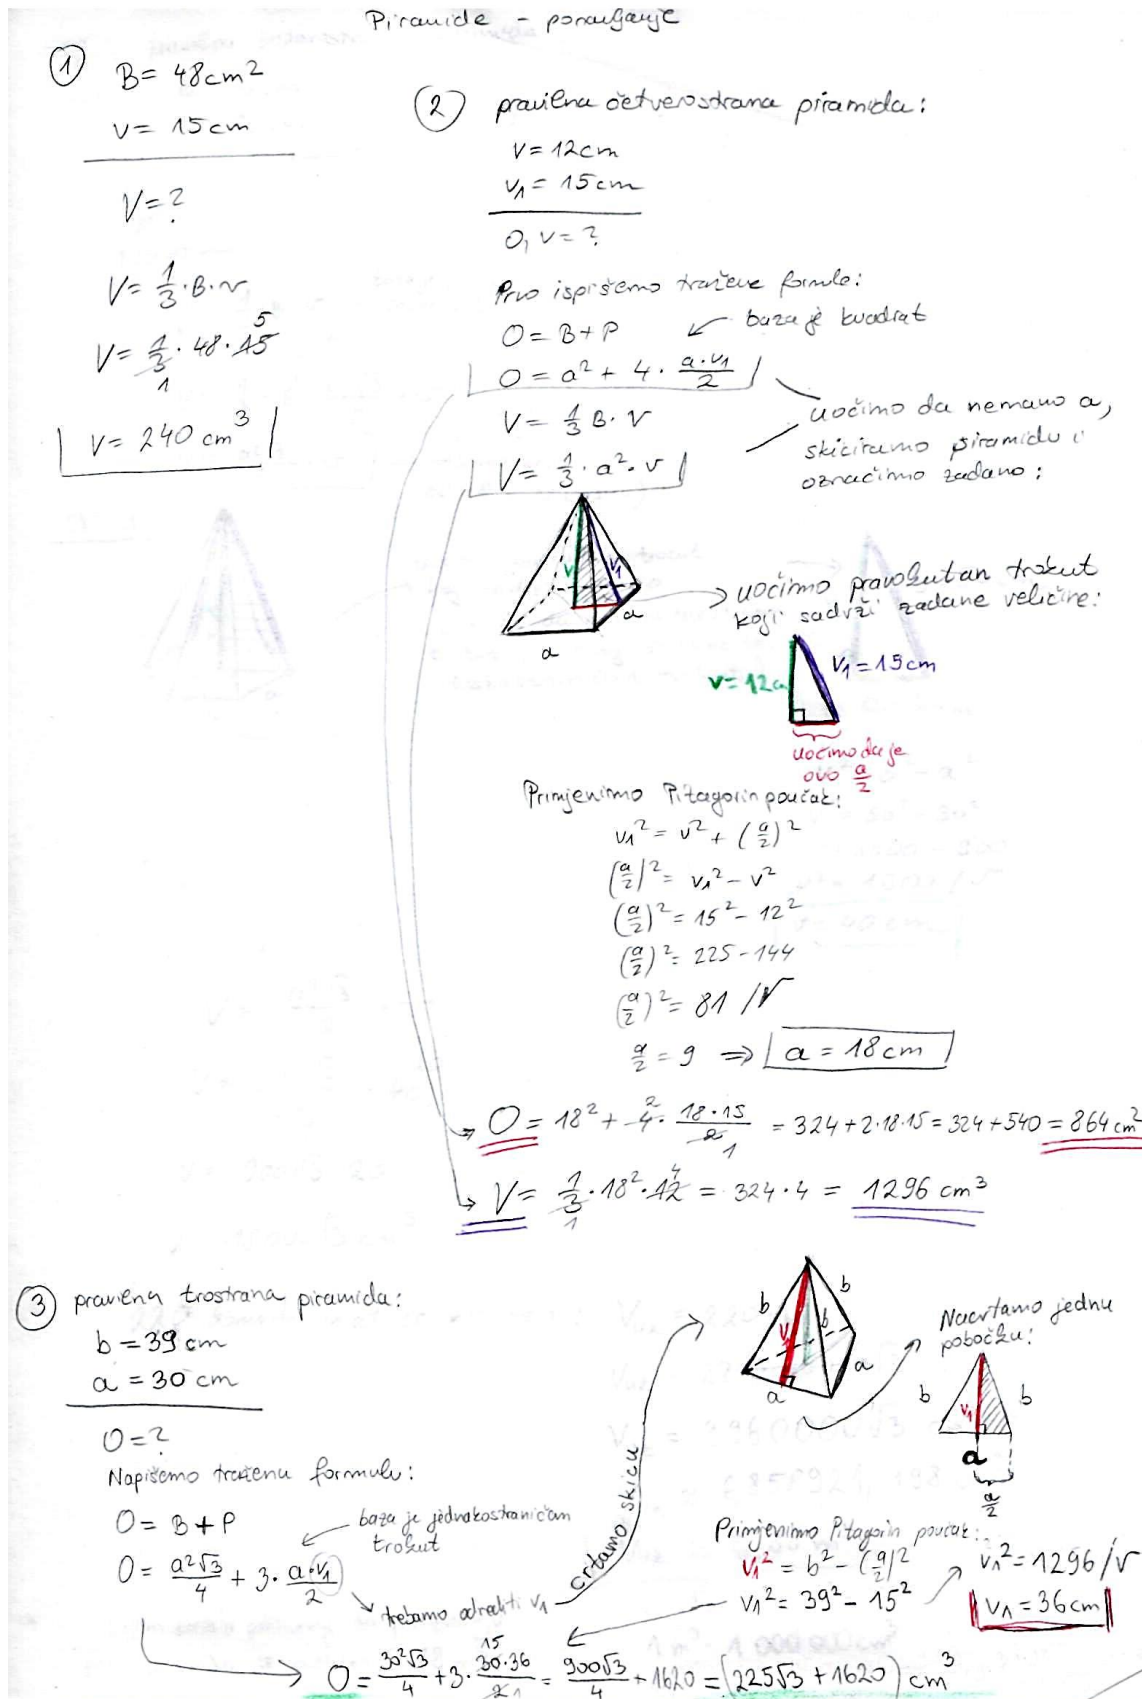 Piramide - ponavljanje
1
B = 48 cm²
v = 15 cm
V = ?
V = 1/3 · B · v
V = 1/3 · 48 · 15
5
1
V = 240 cm³
2 pravilna četverostrana piramida:
v = 12 cm
v₁ = 15 cm
O, V = ?
Prvo ispišemo tražene formule:
O = B + P
baza je kvadrat
O = a² + 4 · a·v₁/2
V = 1/3 B · v
V = 1/3 · a² · v
uočimo da nemamo a,
skiciramo piramidu i
označimo zadano:
v
v₁
a
a
uočimo pravokutan trokut
koji sadrži zadane veličine:
v = 12 c
v₁ = 15 cm
uočimo da je
ovo a/2
Primjenimo Pitagorin poučak:
v₁² = v² + (a/2)²
(a/2)² = v₁² - v²
(a/2)² = 15² - 12²
(a/2)² = 225 - 144
(a/2)² = 81 /√
a/2 = 9 ⇒ a = 18 cm
O = 18² + 4 · 18·15/2 = 324 + 2·18·15 = 324 + 540 = 864 cm²
2
1
V = 1/3 · 18² · 12 = 324 · 4 = 1296 cm³
4
1
3 pravilna trostrana piramida:
b = 39 cm
a = 30 cm
O = ?
Napišemo traženu formulu:
O = B + P
baza je jednakostraničan
trokut
O = a²√3/4 + 3 · a·v₁/2
trebamo odrediti v₁
crtamo skicu
b
b
b
v₁
a
a
Nacrtamo jednu
pobočku:
b
b
v₁
a
a/2
Primjenimo Pitagorin poučak:
v₁² = b² - (a/2)²
v₁² = 39² - 15²
v₁² = 1296 /√
v₁ = 36 cm
O = 30²√3/4 + 3 · 30·36/2 = 900√3/4 + 1620 = (225√3 + 1620) cm³
15
1